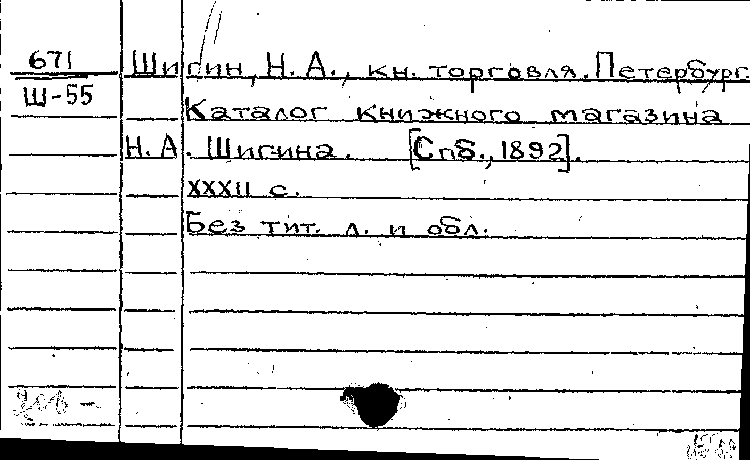 671
Ш-55
Шигин, Н. А., кн. торговля. Петербург
Каталог книжного магазина
Н. А. Шигина. [Спб., 1892].
XXXII с.
Без тит. л. и обл.